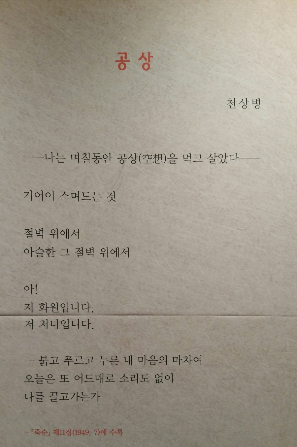 공상
천상병
──나는 며칠동안 공상(空想)을 먹고 살았다──
기어이 스며드는 것
절벽 위에서
아슬한 그 절벽 위에서
아!
저 화원입니다.
저 처녀입니다.
─붉고 푸르고 누른 내 마음의 마차여
오늘은 또 어드매로 소리도 없이
나를 끌고가는가
『죽순』 제11집(1949. 7)에 수록